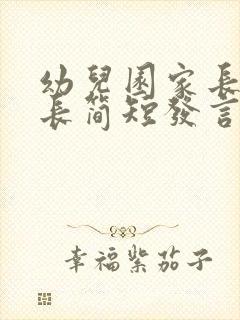 幼兒園家長
長簡短發言
幸福紫茄子